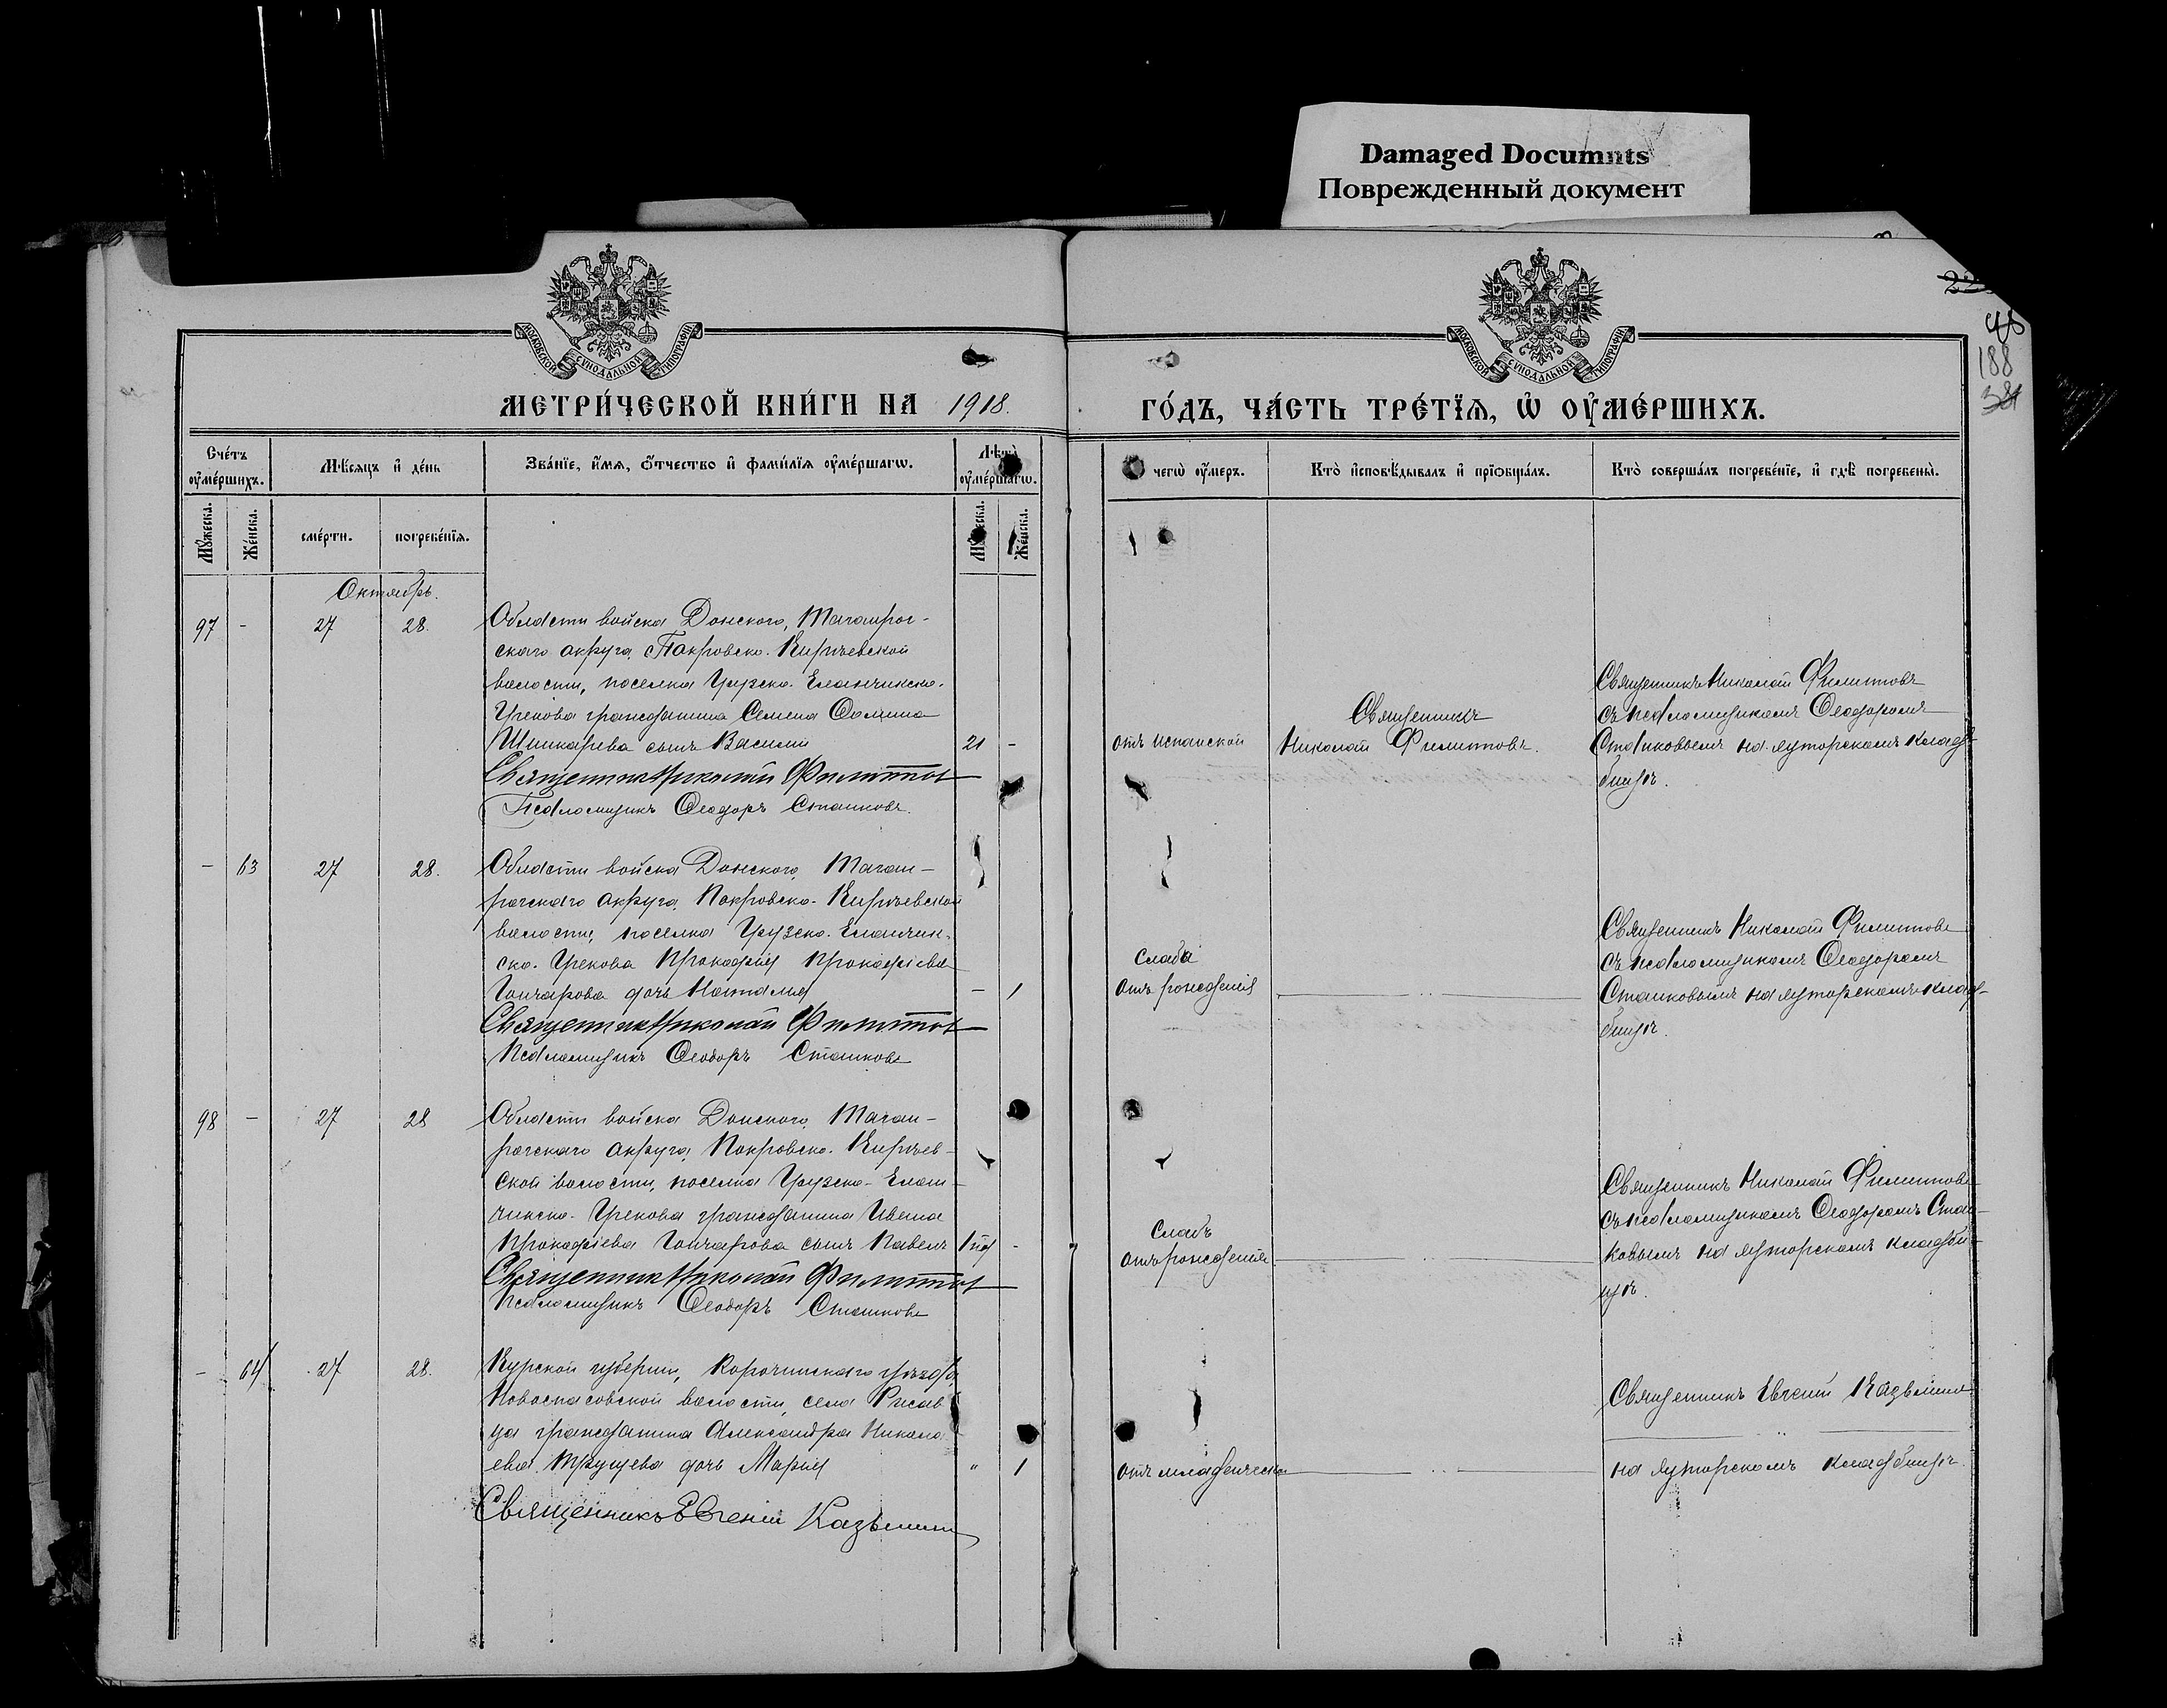 Damaged Documnts
Поврежденный документ
МОСКОВСКОЙ СѴНОДАЛЬНОЙ ТИПОГРАФІИ
МОСКОВСКОЙ СѴНОДАЛЬНОЙ ТИПОГРАФІИ
188
МЕТРИ́ЧЕСКОЙ КНИ́ГИ НА 1918.
ГО́ДЪ, ЧА́СТЬ ТРЕ́ТЇѦ, Ѡ҆ ОУ҆МЕ́РШИХЪ.
Сче́тъ оу҆ме́ршихъ.
Мѣ́сѧцъ и҆ де́нь
Зва́нїе, и҆́мѧ, ѻ҆́тчество и҆ фами́лїѧ оу҆ме́ршагѡ.
Лѣ́та оу҆ме́ршагѡ.
чегѡ̀ оу҆́меръ.
Кто̀ и҆сповѣ́дывалъ и҆ прїѡбща́лъ.
Кто̀ соверша́лъ погребе́нїе, и҆ гдѣ̀ погребены̀.
Мꙋ́жеска.
Же́нска.
сме́рти.
погребе́нїѧ.
Же́нска.
Октябрь.
97 - 27 28.
Области войска Донского, Таганрог-
скаго округа, Покровско-Кирѣевской
волости, поселка Грузско-Еланчикско-
Грекова гражданина Семена Фомина
Шинкарева сынъ Василій 21 -
Священникъ Николай Филиппов
Псаломщикъ Ѳеодоръ Сташковъ.
отъ испанской
Священникъ
Николай Филипповъ.
Священникъ Николай Филипповъ
съ псаломщикомъ Ѳеодоромъ
Сташковымъ на хуторскомъ клад-
бищѣ.
- 63 27 28.
Области войска Донского, Таган-
рогскаго округа, Покровско-Кирѣевской
волости, поселка Грузско-Еланчик-
ско-Грекова Прокофія Прокофіева
Гончарова дочь Наталія - 1
Священникъ Николай Филиппов
Псаломщикъ Ѳеодоръ Сташковъ
Слаба
отъ рожденія
Священникъ Николай Филипповъ
съ псаломщикомъ Ѳеодоромъ
Сташковымъ на хуторскомъ клад-
бищѣ.
98 - 27 28
Области войска Донского, Таган-
рогскаго округа, Покровско-Кирѣев-
ской волости, поселка Грузско-Елан-
чикско-Грекова гражданина Ивана
Прокофіева Гончарова сынъ Павелъ -
Священникъ Николай Филиппов
Псаломщикъ Ѳеодоръ Сташковъ
Слабъ
отъ рожденія
Священникъ Николай Филипповъ
съ псаломщикомъ Ѳеодоромъ Сташ-
ковымъ на хуторскомъ кладби-
щѣ.
- 64 27 28.
Курской губерніи, Корочинскаго уѣзда,
Новоспасовской волости, села
гражданина Александра Никола-
ева дочь Марія " 1
Священникъ Евгеній Казьминъ
отъ младенческой
Священникъ Евгеній Казьминъ
на хуторскомъ кладбищѣ.